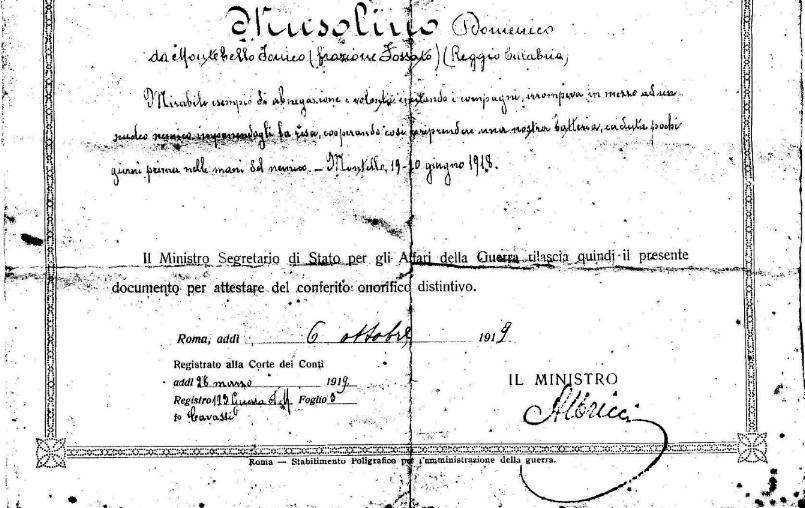 Musolino Domenico
da Montebello Jonico (frazione Fossato) (Reggio Calabria)
Mirabile esempio di abnegazione e volontà incitando i compagni, irrompeva in mezzo ad un
nucleo nemico imponendogli la resa, cooperando così a riprendere una nostra batteria, caduta pochi
giorni prima nelle mani del nemico. — Montello, 19-20 giugno 1918.
Il Ministro Segretario di Stato per gli Affari della Guerra rilascia quindi il presente
documento per attestare del conferito onorifico distintivo.
Roma, addì 6 ottobre 1919
Registrato alla Corte dei Conti
addì 28 marzo 1919
Registro 123 Guerra Foglio
IL MINISTRO
Albricci
Roma — Stabilimento Poligrafico per l'amministrazione della guerra.